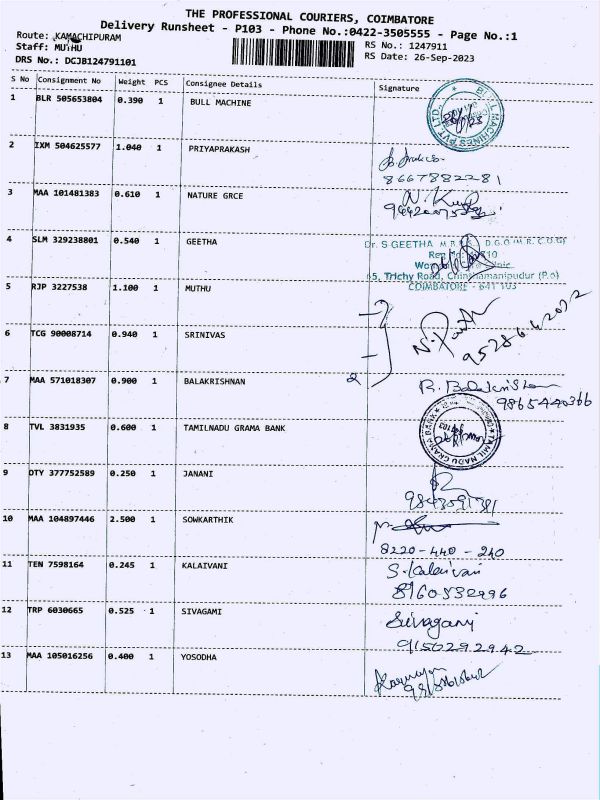 THE PROFESSIONAL COURIERS, COIMBATORE
Delivery Runsheet - P103 - Phone No.:0422-3505555 - Page No.:1
Route: KAMACHIPURAM
RS No.: 1247911
Staff: MUTHU
RS Date: 26-Sep-2023
DRS No.: DCJB124791101
S No Consignment No Weight PCS Consignee Details Signature
1 BLR 505653804 0.390 1 BULL MACHINE
BULL MACHINES PVT. LTD.
2 IXM 504625577 1.040 1 PRIYAPRAKASH
8667882281
3 MAA 101481383 0.610 1 NATURE GRCE
4 SLM 329238801 0.540 1 GEETHA
Dr. S GEETHA
65, Trichy Road, Chinthamanipudur (P.o)
COIMBATORE - 641 103
5 RJP 3227538 1.100 1 MUTHU
6 TCG 90008714 0.940 1 SRINIVAS
7 MAA 571018307 0.900 1 BALAKRISHNAN
2
R. Balakrishnan
9865440366
8 TVL 3831935 0.600 1 TAMILNADU GRAMA BANK
TAMIL NADU GRAMA BANK
9 OTY 377752589 0.250 1 JANANI
10 MAA 104897446 2.500 1 SOWKARTHIK
8220-440-240
11 TEN 7598164 0.245 1 KALAIVANI
S. Kalaivani
8760532996
12 TRP 6030665 0.525 1 SIVAGAMI
Sivagami
9150292942
13 MAA 105016256 0.400 1 YOSODHA